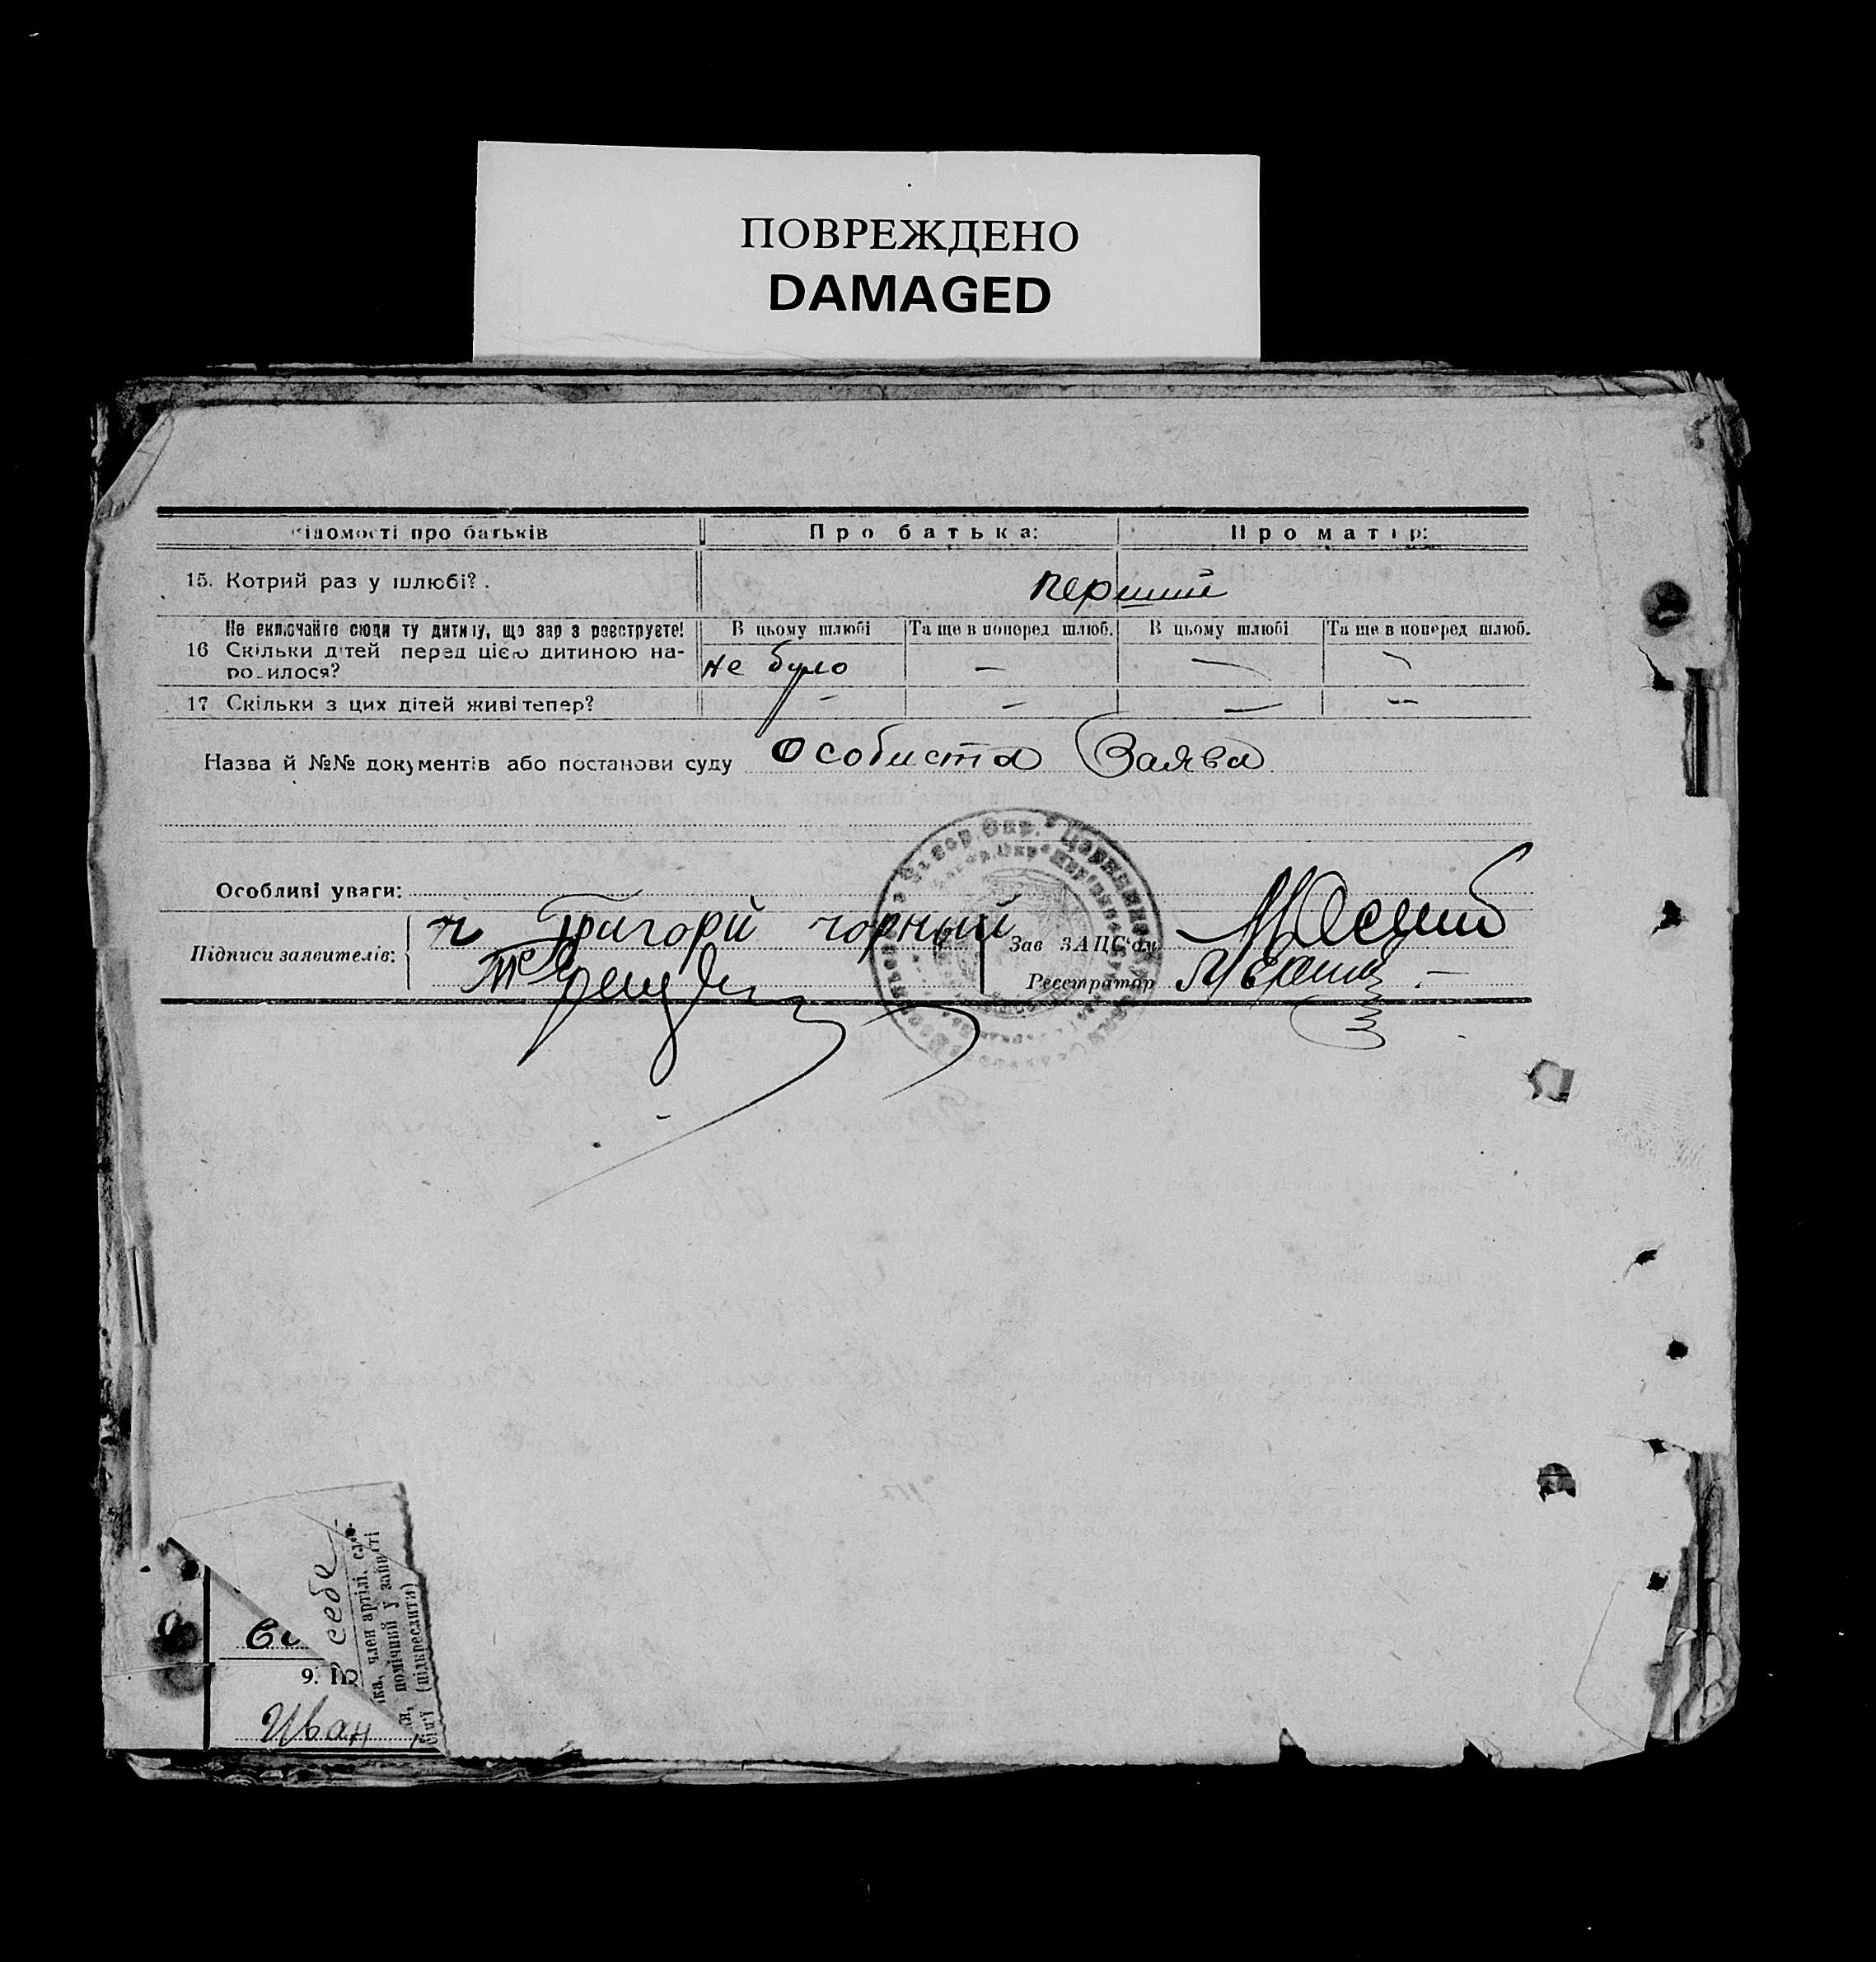 ПОВРЕЖДЕНО
DAMAGED
ідомості про батьків
Про батька:
Про матір:
15. Котрий раз у шлюбі?
перший
Не включайте сюди ту дитину, що зар з реєструєте!
16 Скільки дітей перед цією дитиною на-
ро.илося?
В цьому шлюбі
Та ще в поперед шлюб.
В цьому шлюбі
Та ще в поперед шлюб.
не було – – –
17 Скільки з цих дітей живі тепер?
– – – –
Назва й №№ документів або постанови суду Особиста Заява
Особливі уваги:
Підписи заявителів:
Григорій чорный
Зав ЗАЦС'ом
Реєстратор
себе
ка, член артілі,
помічний у занятті
(підкреслити)
9.
Иван